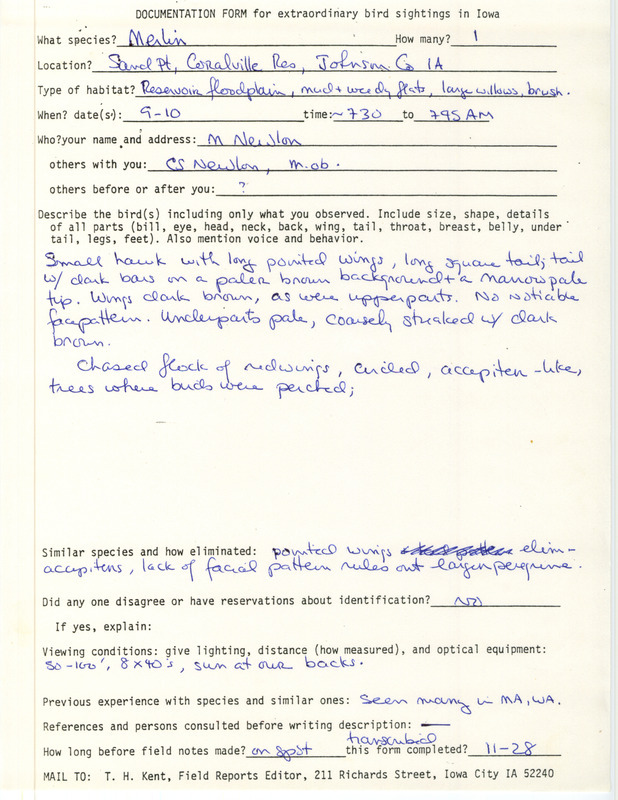 DOCUMENTATION FORM for extraordinary bird sightings in Iowa
What species? Merlin How many? 1
Location? Sand Pt, Coralville Res, Johnson Co IA
Type of habitat? Reservoir floodplain, mud + weedy flats, large willows, brush.
When? date(s): 9-10 time: ~730 to 745 AM
Who?your name and address: M Newlon
others with you: CS Newlon, m.ob.
others before or after you: ?
Describe the bird(s) including only what you observed. Include size, shape, details
of all parts (bill, eye, head, neck, back, wing, tail, throat, breast, belly, under
tail, legs, feet). Also mention voice and behavior.
Small hawk with long pointed wings, long square tail; tail
w/ dark bars on a paler brown background + a narrow pale
tip. Wings dark brown, as were upperparts. No noticible
face pattern. Underparts pale, coarsely streaked w/ dark
brown.
Chased flock of redwings, circled, accipiter-like,
trees where birds were perched;
Similar species and how eliminated: pointed wings elim-
accipiters, lack of facial pattern rules out larger peregrine.
Did any one disagree or have reservations about identification? NO
If yes, explain:
Viewing conditions: give lighting, distance (how measured), and optical equipment:
50-100', 8x40's, sun at our backs.
Previous experience with species and similar ones: Seen many in MA, WA.
References and persons consulted before writing description: —
transcribed
How long before field notes made? on spot this form completed? 11-28
MAIL TO: T. H. Kent, Field Reports Editor, 211 Richards Street, Iowa City IA 52240